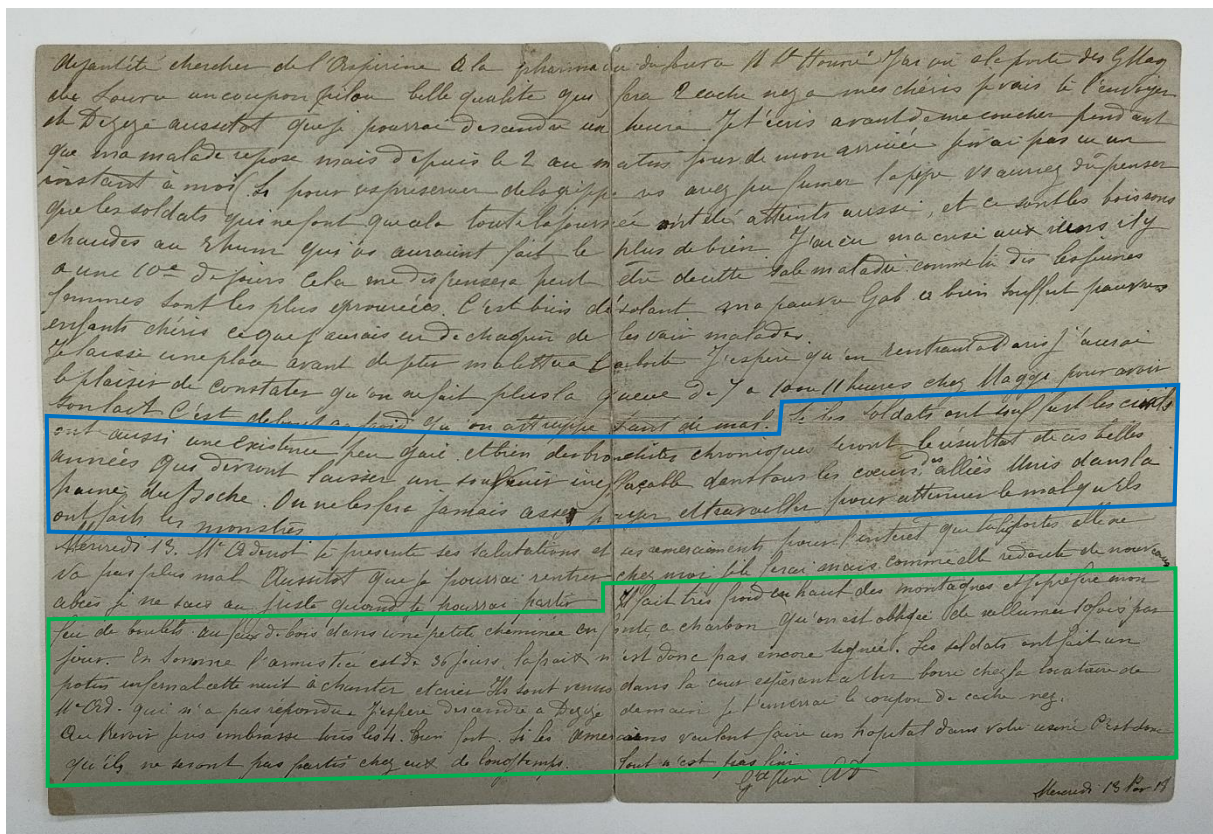 Ayant été chercher de l'Aspirine à la pharmacie du Louvre St Honoré J'ai vu à la porte des G Mag
du Louvre un coupon pilou belle qualité qui fera 2 cache nez a mes chéris je vais te l'envoyer
de Dezize aussitot que je pourrai descendre une heure Je t'écris avant de me coucher pendant
que ma malade repose mais depuis le 2 au matin jour de mon arrivée je n'ai pas eu un
instant à moi. Si pour vs préserver de la grippe vs avez pu fumer la pipe vs auriez dû penser
que les soldats qui ne font que cela toute la journée ont été atteints aussi, et ce sont les boissons
chaudes au Rhum qui vs auraient fait le plus de bien J'ai eu ma crise aux reins il y
a une 10ne de jours Cela me dispensera peut être de cette sale maladie comme tu dis les jeunes
femmes sont les plus éprouvées. C'est bien désolant ma pauvre Gab a bien souffert pauvres
enfants chéris ce que j'aurais eu de chagrin de les voir malades.
Je laisse une place avant de jeter ma lettre à la boite J'espère qu'en rentrant à Paris j'aurai
le plaisir de constater qu'on ne fait plus la queue de 7 a 10 ou 11 heures chez Maggi pour avoir
son lait C'est debout au froid qu'on attrappe tant de mal. Si les soldats ont souffert les civils
ont aussi une existence peu gaie et bien des bronchites chroniques seront le résultat de ces belles
années qui devront laisser un souvenir ineffaçable dans tous les coeurs des alliés Unis dans la
haine du boche. On ne les fera jamais assez payer et travailler pour atténuer le mal qu'ils
ont faits ces monstres
Mercredi 13. Me te présente ses salutations et ses remerciements pour l'intérêt que tu lui portes elle ne
va pas plus mal Aussitot que je pourrai rentrer chez moi je le ferai mais comme elle redoute de nouveau
je ne sais au juste quand je pourrai partir Il fait très froid en haut des montagnes et je préfère mon
feu de boulets au feu de bois dans une petite cheminée à charbon qu'on est obligée de rallumer 10 fois par
jour. En somme l'armistice est de 36 jours la paix n'est donc pas encore signée. Les soldats ont fait un
potin infernal cette nuit à chanter et crier Ils sont venus dans la cour espérant aller boire chez la locataire de
Me Ad. qui n'a pas répondu J'espère descendre a Dezize demain je t'enverrai le coupon de cache nez.
Au Revoir je vs embrasse tous les 4 bien fort. Si les Américains veulent faire un hopital dans votre usine C'est donc
qu'ils ne seront pas partis chez eux de longtemps. Tout n'est pas fini
Mercredi 13 Nov 18